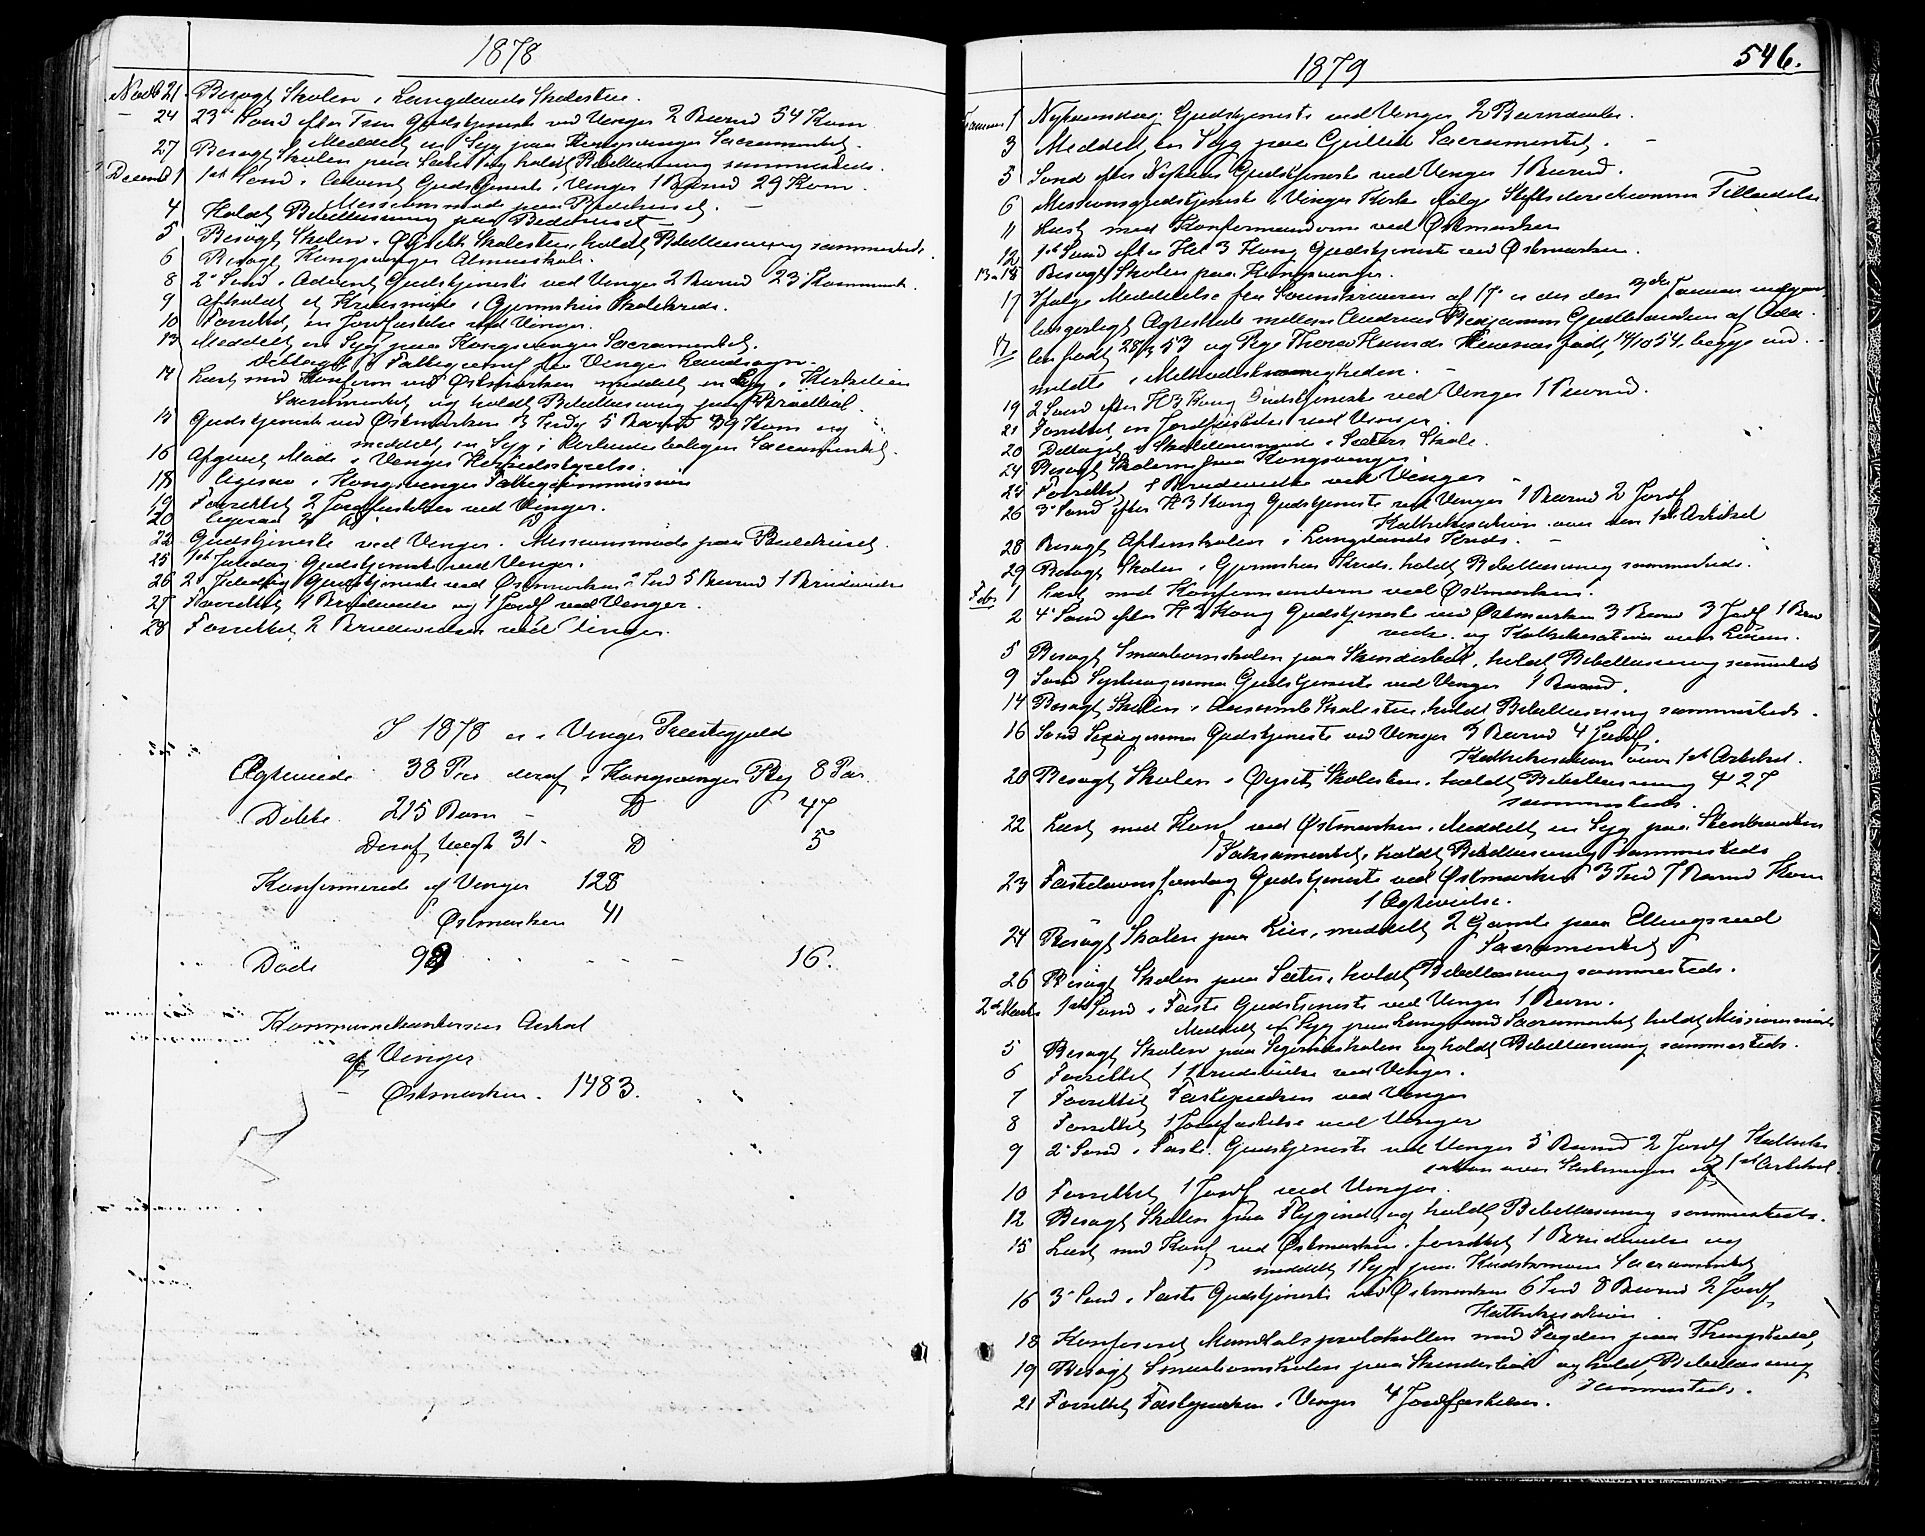 1878
Novb 21. Besøgt Skolen i Langelands Skolestue.
24 23de Sønd efter Trin Gudstjeneste ved Vinger 2 Barnd 54 Kom
Meddelt en Syg paa Kongsvinger Sacramentet.
27 Besøgt Skolen paa Sæter og holdt Bibellæsning sammesteds.
Decemb 1 1ste Sønd i Advent Gudstjeneste i Vinger 1 Barnd 29 Kom.
Missionsmøde paa Bedehuset.
4 Holdt Bibellæsning paa Bedehuset
5 Besøgt Skolen i Øiset Skolestue, holdt Bibellæsning sammesteds.
6 Besøgt Kongsvinger Almueskole.
8 2den Sønd i Advent Gudstjeneste ved Vinger 2 Barnd 23 Kommunik.
9 Afholdt et Kredsmøde i Gjermshus Skolekreds.
10 Forrettet en Jordfæstelse ved Vinger.
13 Meddelt en Syg paa Kongsvinger Sacramentet.
Deltaget i Fattigcomm for Vinger Landsogn.
14 Læst med Konfirm ved Østmarken meddelt en Syg i
Sacramentet og holdt Bibellæsning paa
15 Gudstjeneste ved Østmarken 3 Introd 5 Barnd 49 Kom og
meddelt en Syg i Sacramentet.
16 Møde i Vinger Herredsstyrelse.
18 ligesaa i Kongsvinger Fattigcommission
19 Forrettet 2 Jordfæstelser ved Vinger.
20 ligesaa 3 D
22 Gudstjeneste ved Vinger. Missionsmøde paa Bedehuset.
25 1ste Juledag Gudstjeneste ved Vinger.
26 2 Juledag Gudstjeneste ved Østmarken 2 Ind 5 Barnd 1 Brudevielse
27 Forrettet 4 Brudevielse og 1 Jordf ved Vinger.
28 Forrettet 2 Brudevielser ved Vinger.
I 1878 er i Vinger Præstegjeld
Ægteviede 38 Par deraf i Kongsvinger By 8 Par.
Døbte 215 Børn - D 47
Deraf Uegte 31 - D 5
Konfirmerede af Vinger 128
Østmarken 41
Døde 99 - - - - 16.
Kommunikanternes Antal
af Vinger
- Østmarken. 1483.
546.
1879
Januar 1 Nytaarsdag Gudstjeneste ved Vinger 2 Barndaaber.
3 Meddelt en Syg paa Sacramentet.
5 Sønd efter Nytaar Gudstjeneste ved Vinger 1 Barnd.
6 Missionsgudstjeneste i Vinger Kirke ifølge Stiftsdirectionens Tilladelse
11 Læst med Konfirmanderne ved Østmarken
12 1ste Sønd efter Hel 3 Kong Gudstjeneste ved Østmarken.
13-18 Besøgt Skolen paa Kongsvinger.
17 Ifølge Meddelelse fra Sorenskriveren af 17 er der den Januar indgaaet
borgerligt Ægteskab mellem Andreas Benjamin Gulbrandsen af
født 53 og Pige Thea født 14/10 54, begge ind-
meldte i Methodistmenigheden.
19 2 Sønd efter H 3 Kong Gudstjeneste ved Vinger 1 Barnd.
21 Forrettet en Jordfæstelse ved Vinger.
20 Deltaget i Skolelærermøde i Sæter Skole.
24 Besøgt Skolerne paa Kongsvinger.
25 Forrettet 1 Brudevielse ved Vinger
26 3 Sønd efter H 3 Kong Gudstjeneste ved Vinger 1 Barnd 2 Jordf
Kathekisation over den 1ste Artikel
28 Besøgt Aftenskolen i Langelands Kreds.
29 Besøgt Skolen i Gjermshus Kreds. holdt Bibellæsning sammesteds.
Febr 1 Læst med Konfirmanderne ved Østmarken.
2 4 Sønd efter H 3 Kong Gudstjeneste ved Østmarken 3 Barnd 3 Jordf 1 Brude
vielse og Kathekisation over
5 Besøgt Smaabørnskolen paa Skinderbøl, holdt Bibellæsning sammesteds
9 Sønd Septuagesima Gudstjeneste ved Vinger 1 Barnd.
14 Besøgt Skolen i Skolestue, holdt Bibellæsning sammesteds.
16 Sønd Sexagesima Gudstjeneste ved Vinger 3 Barnd 4 Jordf.
Kathekisation over 1ste Artikel.
20 Besøgt Skolen i Øiset Skolestue. holdt Bibellæsning
sammesteds.
22 Læst med Konf ved Østmarken. Meddelt en Syg paa
Sakramentet, holdt Bibellæsning sammesteds
23 Fastelavnssøndag Gudstjeneste ved Østmarken 3 Ind 7 Barnd Kom
1 Ægtevielse.
24 Besøgt Skolen paa Lier, meddelt 2 Gamle paa Ellingsrud
Sacramentet
26 Besøgt Skolen paa Sæter, holdt Bibellæsning sammesteds.
2 Marts 1ste Sønd i Faste Gudstjeneste ved Vinger 1 Barn.
Meddelt en Syg paa Langeland Sacramentet holdt Missionsmøde
5 Besøgt Skolen paa og holdt Bibellæsning sammesteds.
6 Forrettet 1 Brudevielse ved Vinger.
7 Forrettet Fasteprædiken ved Vinger
8 Forrettet 1 Jordfæstelse ved Vinger
9 2 Sønd i Faste. Gudstjeneste ved Vinger 5 Barnd 2 Jordf Katheki-
sation over Slutningen af 1ste Artikel
10 Forrettet 1 Jordf ved Vinger.
12 Besøgt Skolen paa og holdt Bibellæsning sammesteds.
15 Læst med Konf ved Østmarken. forrettet 1 Brudevielse og
meddelt 1 Syg paa Sacramentet
16 3 Sønd i Faste Gudstjeneste ved Østmarken 6 Ind 8 Barnd 2 Jordf
Kathekisation
18 Konfereret Mandtalsprotokollen med Fogden paa
19 Besøgt Smaabørnskolen paa Skinderbøl og holdt Bibellæsning
sammesteds.
21 Forrettet Fasteprædiken i Vinger 4 Jordfæstelser.